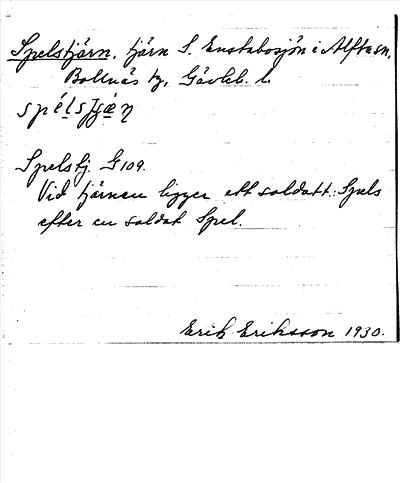 Spelstjärn, tjärn S. Enstabosjön i Alfta sn,
Bollnäs tg, Gävleb. l.
spélsʃjæ̣ṇ
Spelstj. G 109.
Vid tjärnen ligger ett soldatt.: Spels
efter en soldat Spel.
Erik Eriksson 1930.